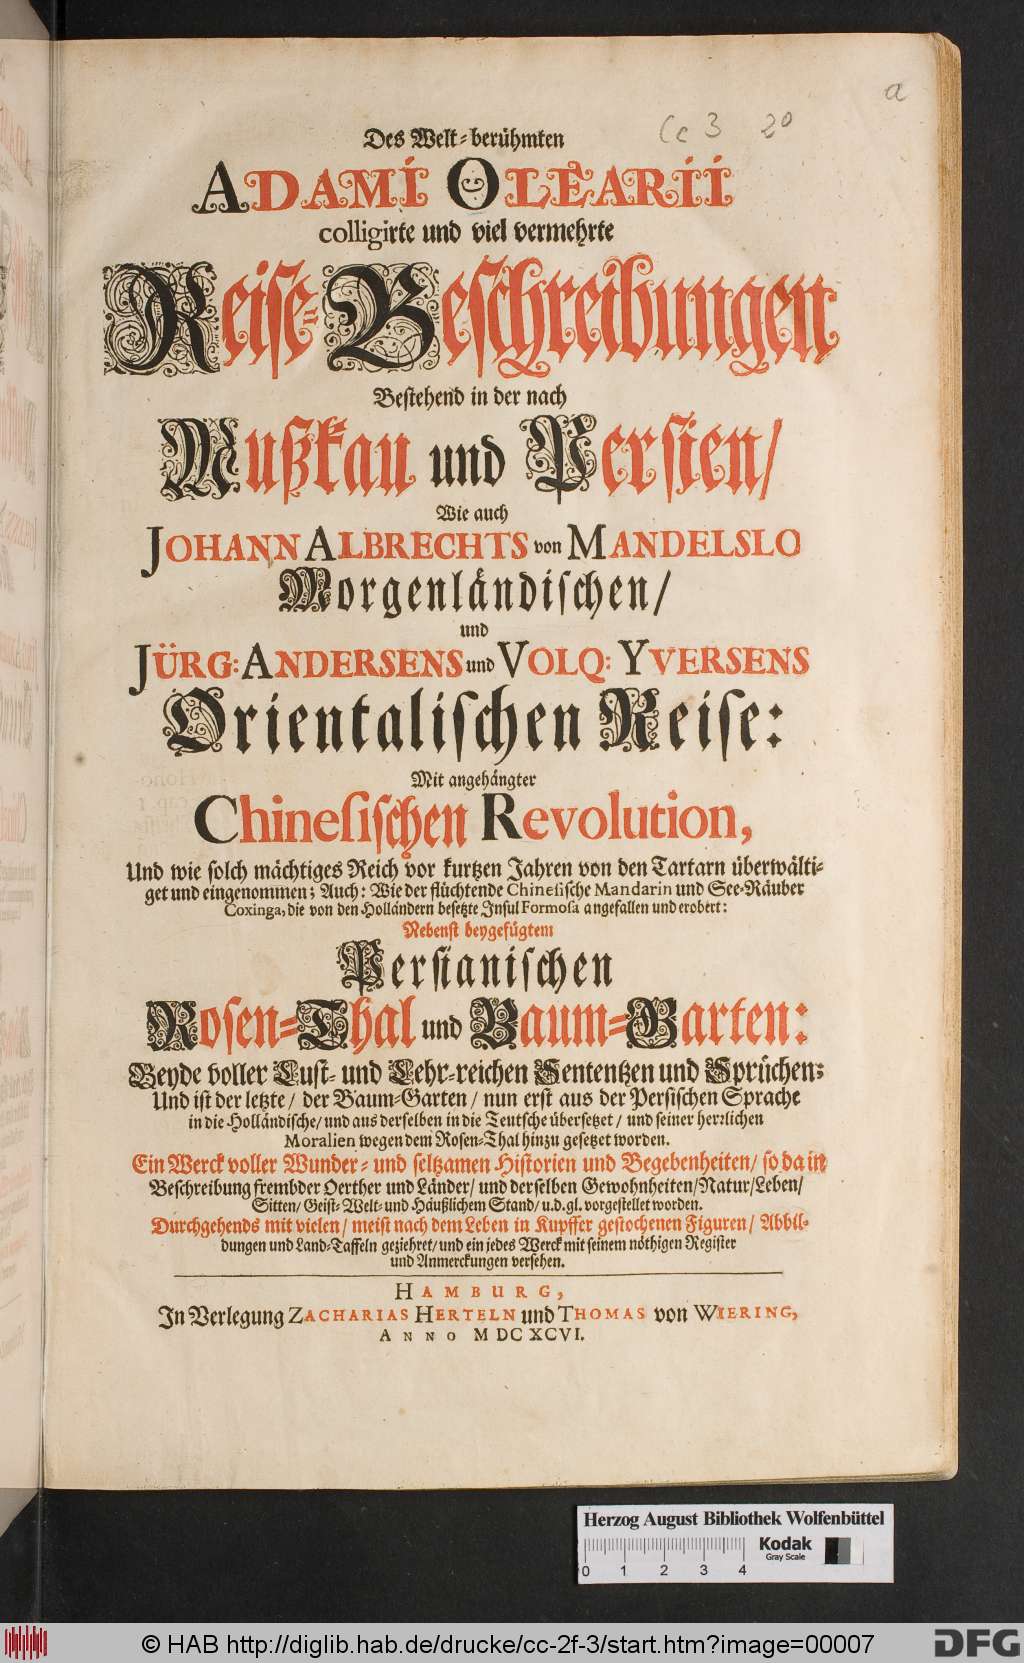 a
Cc 3 20
Des Welt-berühmten
ADAMI OLEARII
colligirte und viel vermehrte
Reise-Beschreibungen
Bestehend in der nach
Mußkau und Persien/
Wie auch
JOHANN ALBRECHTS von MANDELSLO
Morgenländischen/
und
JÜRG: ANDERSENS und VOLQ: YVERSENS
Orientalischen Reise:
Mit angehängter
Chinesischen Revolution,
Und wie solch mächtiges Reich vor kurtzen Jahren von den Tartarn überwälti-
get und eingenommen; Auch: Wie der flüchtende Chinesische Mandarin und See-Räuber
Coxinga, die von den Holländern besetzte Insul Formosa angefallen und erobert:
Nebenst beygefügtem
Persianischen
Rosen-Thal und Baum-Garten:
Beyde voller Lust- und Lehr-reichen Sententzen und Sprüchen;
Und ist der letzte/ der Baum-Garten/ nun erst aus der Persischen Sprache
in die Holländische/ und aus derselben in die Teutsche übersetzet/ und seiner herrlichen
Moralien wegen dem Rosen-Thal hinzu gesetzet worden.
Ein Werck voller Wunder- und seltzamen Historien und Begebenheiten/ so da in
Beschreibung frembder Oerther und Länder/ und derselben Gewohnheiten/ Natur/ Leben/
Sitten/ Geist- Welt- und Häußlichem Stand/ u.d.gl. vorgestellet worden.
Durchgehends mit vielen/ meist nach dem Leben in Kupffer gestochenen Figuren/ Abbil-
dungen und Land-Taffeln geziehret/ und ein jedes Werck mit seinem nöthigen Register
und Anmerckungen versehen.
HAMBURG,
In Verlegung ZACHARIAS HERTELN und THOMAS von WIERING,
ANNO MDCXCVI.
Herzog August Bibliothek Wolfenbüttel
Kodak
Gray Scale
0 1 2 3 4
© HAB http://diglib.hab.de/drucke/cc-2f-3/start.htm?image=00007
DFG